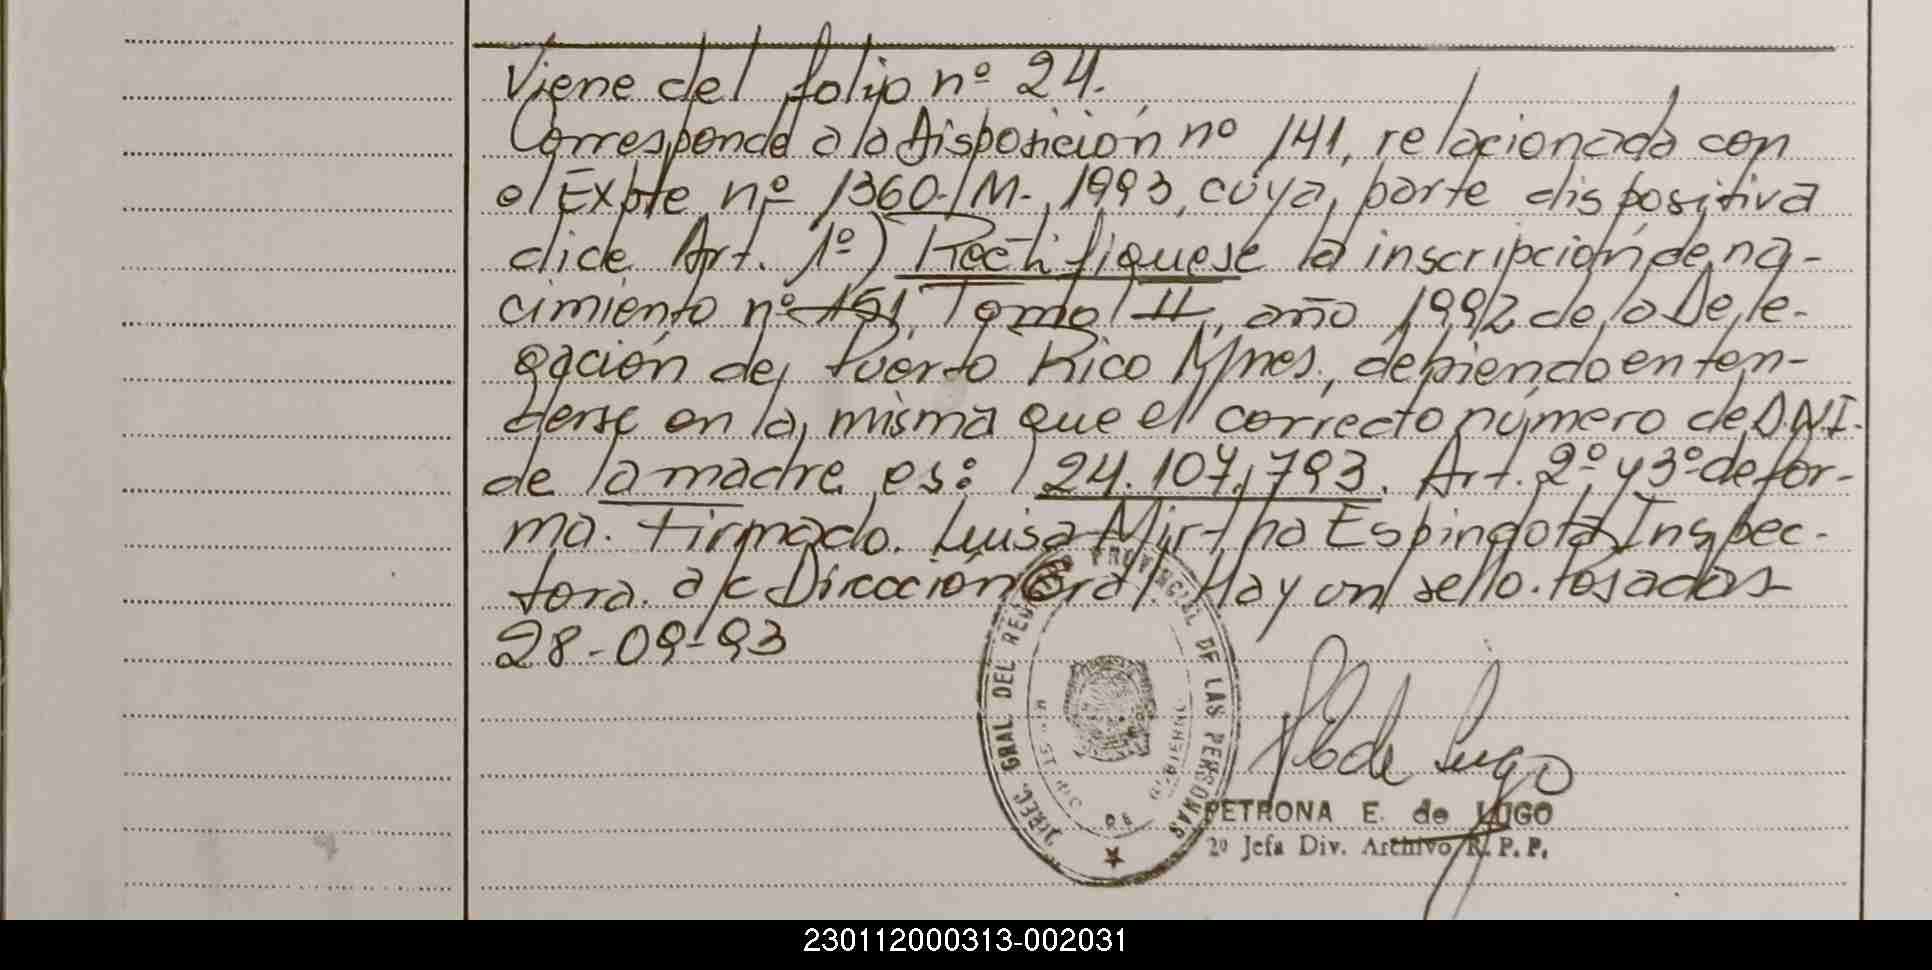 Viene del folio nº 24.
Corresponde a la Disposición nº 141, relacionada con
el Expte nº 1360-M-1993, cuya parte dispositiva
dice Art. 1º) Rectifíquese la inscripción de na-
cimiento nº 151, Tomo II, año 1992 de la Dele-
gación de Puerto Rico Mnes., debiendo enten-
derse en la misma que el correcto número de D.N.I.
de la madre es: 24.107.793. Art. 2º y 3º de for-
ma. Firmado. Luisa Mirtha Espindola Inspec-
tora. a/c Dirección Gral. Hay un sello. Posadas
28-09-93
DIREC. GRAL DEL REG PROVINCIAL DE LAS PERSONAS
PETRONA E. de LUGO
2º Jefa Div. Archivo R. P. P.
230112000313-002031